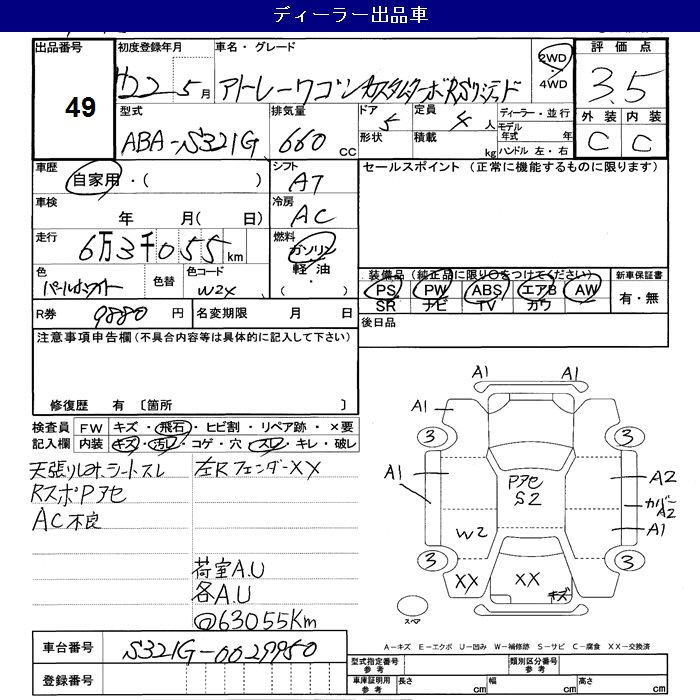 ディーラー出品車
出品番号 初度登録年月 車名・グレード 2WD・4WD 評価点
49 H22 5月 アトレーワゴンカスタムターボRSリミテッド 3.5
型式 排気量 ドア 5 定員 4人 ディーラー・並行 外装 内装
ABA-S321G 660cc 形状 積載 kg モデル年式 年 C C
ハンドル 左・右
車歴 シフト セールスポイント(正常に機能するものに限ります)
自家用・( ) AT
車検 年 月( ) 冷房 AC
走行 6万3千055km 燃料 ガソリン 軽油・( )
色 パールホワイト 色替 色コード W2X
装備品(純正品に限り○をつけてください) 新車保証書
PS PW ABS エアB AW 有・無
SR ナビ TV カワ
R券 9880円 名変期限 月 日 後日品
注意事項申告欄(不具合内容等は具体的に記入して下さい)
修復歴 有 〔箇所 〕
検査員 FW キズ・飛石・ヒビ割・リペア跡・×要
記入欄 内装 キズ・汚れ・コゲ・穴・スレ・キレ・破レ
天張りしみ、シートスレ 左RフェンダーXX
RスポPアセ
AC不良
荷室A.U
各A.U
@63055Km
A1 A1
A1
3 3
A1 Pアセ A2
S2 カバー
A2
W2 A1
3 3
XX XX キズ
スペア
車台番号 S321G-0029950
A-キズ E-エクボ U-凹み W-補修跡 S-サビ C-腐食 XX-交換済
登録番号
型式指定番号 参考 類別区分番号 参考
車庫証明用 参考 長さ cm 幅 cm 高さ cm